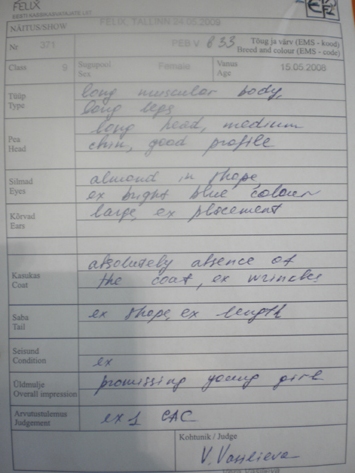 FELIX
EESTI KASSIKASVATAJATE LIIT
NÄITUS/SHOW
FELIX, TALLINN 24.05.2009
Nr 371 PEB V 033 Tõug ja värv (EMS - kood)
Breed and colour (EMS - code)
Class 9 Sugupool Female Vanus 15.05.2008
Sex Age
Tüüp long muscular body,
Type long legs
Pea long head, medium
Head chin, good profile
Silmad almond in shape,
Eyes ex bright blue colour
Kõrvad large, ex placement
Ears
Karvkas absolutely absence of
Coat the coat, ex wrincles
Saba ex shape, ex length
Tail
Seisund
Condition ex
Üldmulje promissing young girl
Overall impression
Arvustustulemus ex 1 CAC
Judgement
Kohtunik / Judge
V. Vasilieva